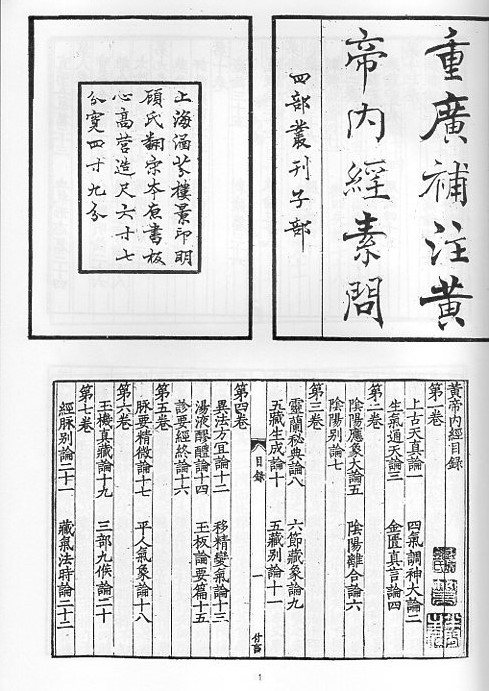 重廣補注黃
帝内經素問
四部叢刊子部
上海涵芬樓景印明
顧氏翻宋本原書板
心高營造尺六寸七
分寬四寸九分
黃帝内經目録
第一卷
上古天真論一 四氣調神大論二
生氣通天論三 金匱真言論四
第二卷
陰陽應象大論五 陰陽離合論六
陰陽别論七
第三卷
靈蘭秘典論八 六節藏象論九
五藏生成論十 五藏别論十一
目録 一
第四卷
異法方宜論十二 移精變氣論十三
湯液醪醴論十四 玉板論要篇十五
診要經終論十六
第五卷
脉要精微論十七 平人氣象論十八
第六卷
玉機真藏論十九 三部九候論二十
第七卷
經脉别論二十一 藏氣法時論二十二
1